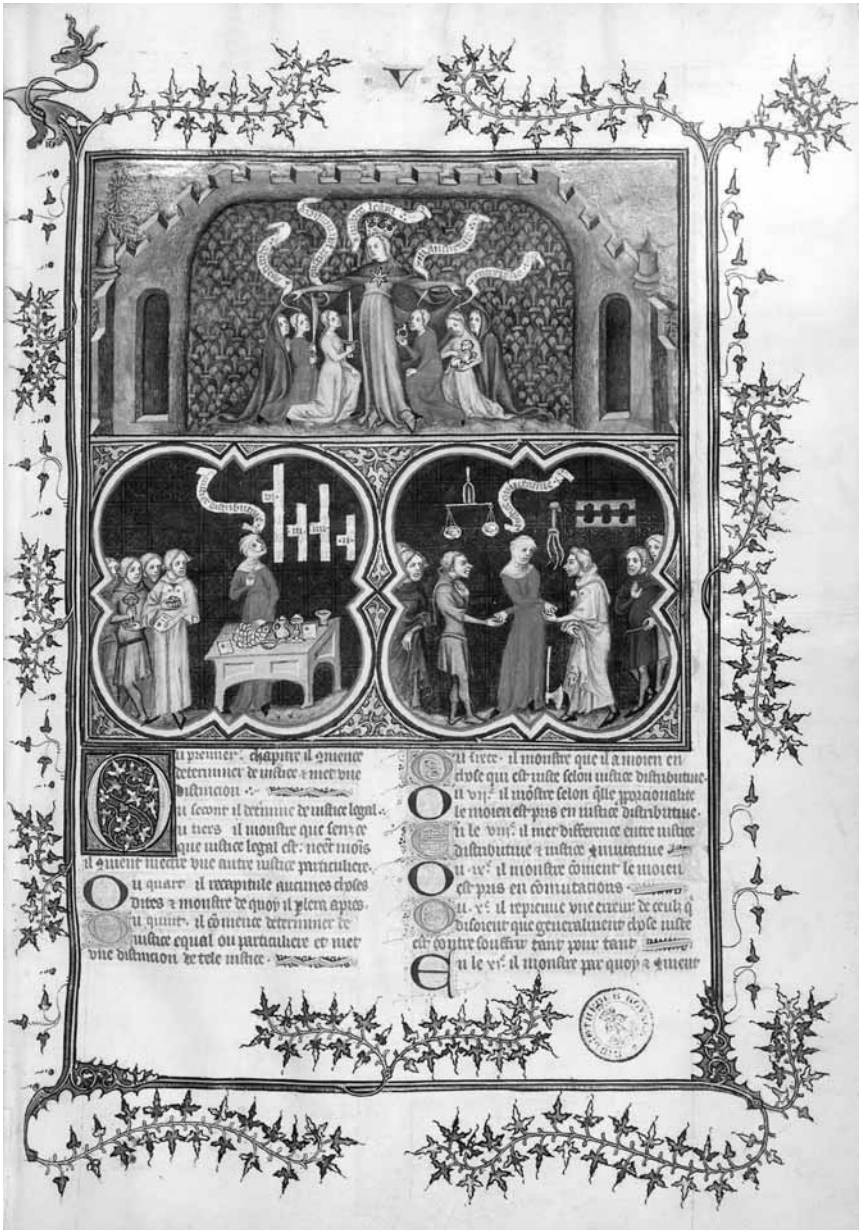 V
Ou premier· chapitre il 9mence
determiner de iustice ⁊ met vne
distinction ·
Ou secont il determine de iustice legal·
Ou tiers il monstre que senz ce
que iustice legal est· mois
il 9uient mectre vne autre iustice particuliere·
Ou quart· il recapitule aucunes choses
dites ⁊ monstre de quoy il plera apres·
Ou quint· il cõmence determiner de
iustice equal ou particuliere et met
vne distinction de tele iustice·
Ou sixte· il monstre que il a moien en
chose qui est iuste selon iustice distributiue·
Ou vijᵉ· il mõstre selon qͥlle pporcionalite
le moien est pris en iustice distributiue·
En le viijᵉ· il met difference entre iustice
distributiue ⁊ iustice 9mutatiue
Ou ·ixᵉ· il monstre cõment le moien
est pris en cõmutacions·
Ou· xᵉ· il repreuue vne erreur de ceulz q̃
disoient que generalment chose iuste
est contre souffrir tant pour tant
En le xjᵉ· il monstre par quoy ⁊ 9ment